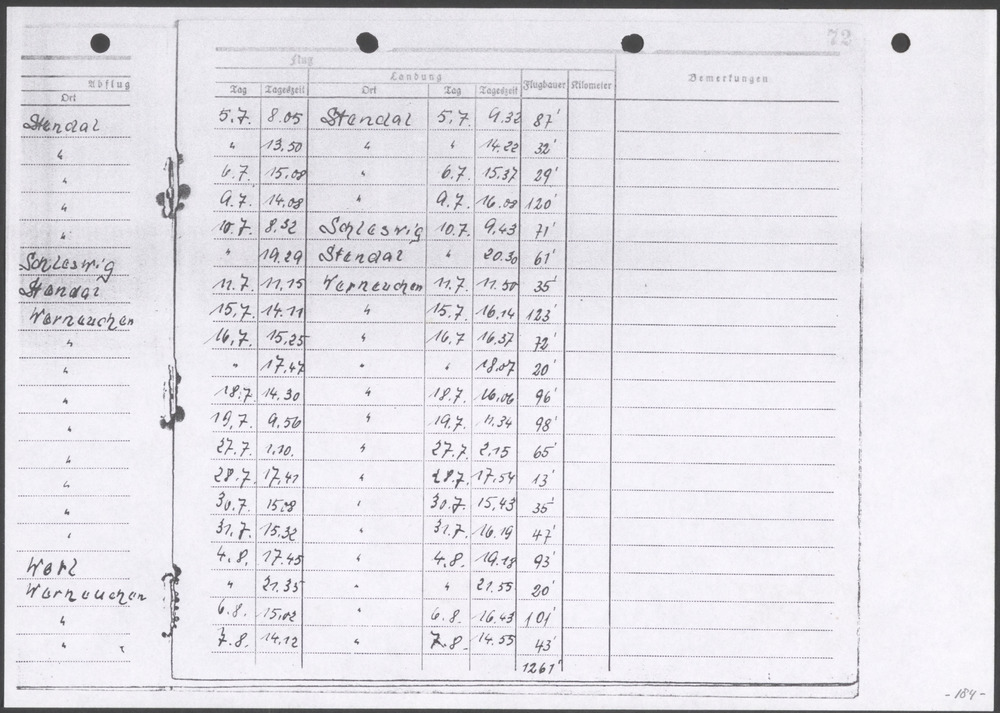 72
Flug
Abflug Landung Flugdauer Kilometer Bemerkungen
Ort Tag Tageszeit Ort Tag Tageszeit
Stendal 5.7. 8.05 Stendal 5.7. 9.32 87'
" " 13.50 " " 14.22 32'
" 6.7. 15.08 " 6.7. 15.37 29'
" 9.7. 14.08 " 9.7. 16.08 120'
" 10.7. 8.32 Schleswig 10.7. 9.43 71'
Schleswig " 19.29 Stendal " 20.30 61'
Stendal 11.7. 11.15 Werneuchen 11.7. 11.50 35'
Werneuchen 15.7. 14.11 " 15.7. 16.14 123'
" 16.7. 15.25 " 16.7 16.37 72'
" " 17.47 " " 18.07 20'
" 18.7. 14.30 " 18.7. 16.06 96'
" 19.7. 9.56 " 19.7. 11.34 98'
" 27.7. 1.10. " 27.7. 2.15 65'
" 28.7. 17.41 " 28.7. 17.54 13'
" 30.7. 15.08 " 30.7. 15.43 35'
" 31.7. 15.32 " 31.7. 16.19 47'
Werl 4.8. 17.45 " 4.8. 19.18 93'
Werneuchen " 21.35 " " 21.55 20'
" 6.8. 15.02 " 6.8. 16.43 101'
" 7.8. 14.12 " 7.8. 14.55 43'
1261'
- 184 -